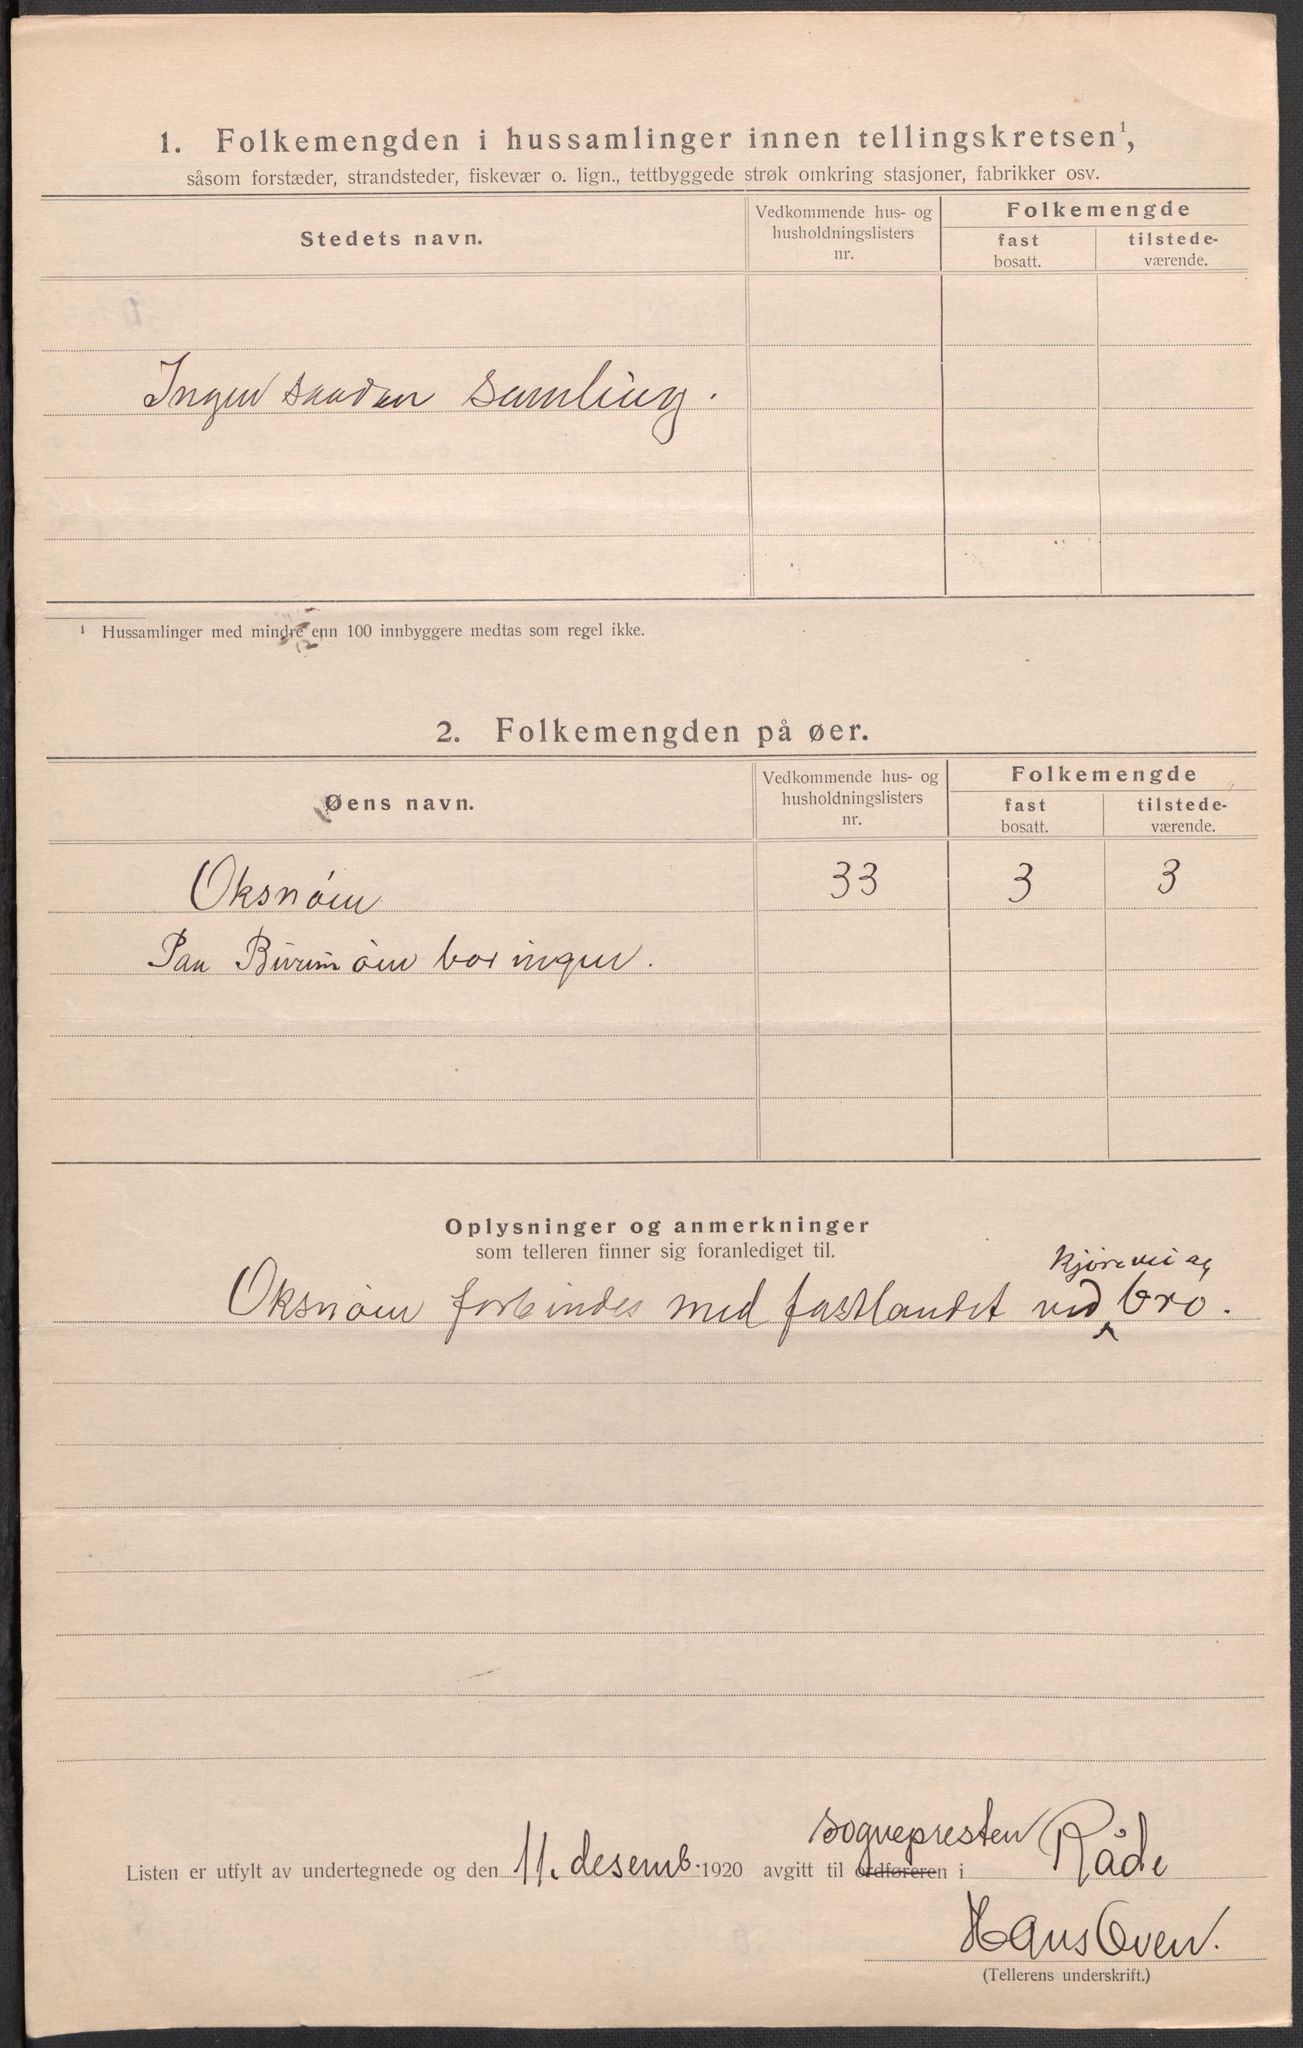 1. Folkemengden i hussamlinger innen tellingskretsen¹,
såsom forstæder, strandsteder, fiskevær o. lign., tettbyggede strøk omkring stasjoner, fabrikker osv.
Stedets navn.
Vedkommende hus- og husholdningslisters nr.
Folkemengde
fast bosatt.
tilstede-værende.
Ingen saadan samling.
¹ Hussamlinger med mindre enn 100 innbyggere medtas som regel ikke.
2. Folkemengden på øer.
Øens navn.
Vedkommende hus- og husholdningslisters nr.
Folkemengde
fast bosatt.
tilstede-værende.
Oksnöen 33 3 3
Paa Burumöen bor ingen.
Oplysninger og anmerkninger
som telleren finner sig foranlediget til.
kjørevei og
Oksnöen forbindes med fastlandet ved bro.
sognepresten
Listen er utfylt av undertegnede og den 11. desemb. 1920 avgitt til ordføreren i Råde
Hans Oven.
(Tellerens underskrift.)